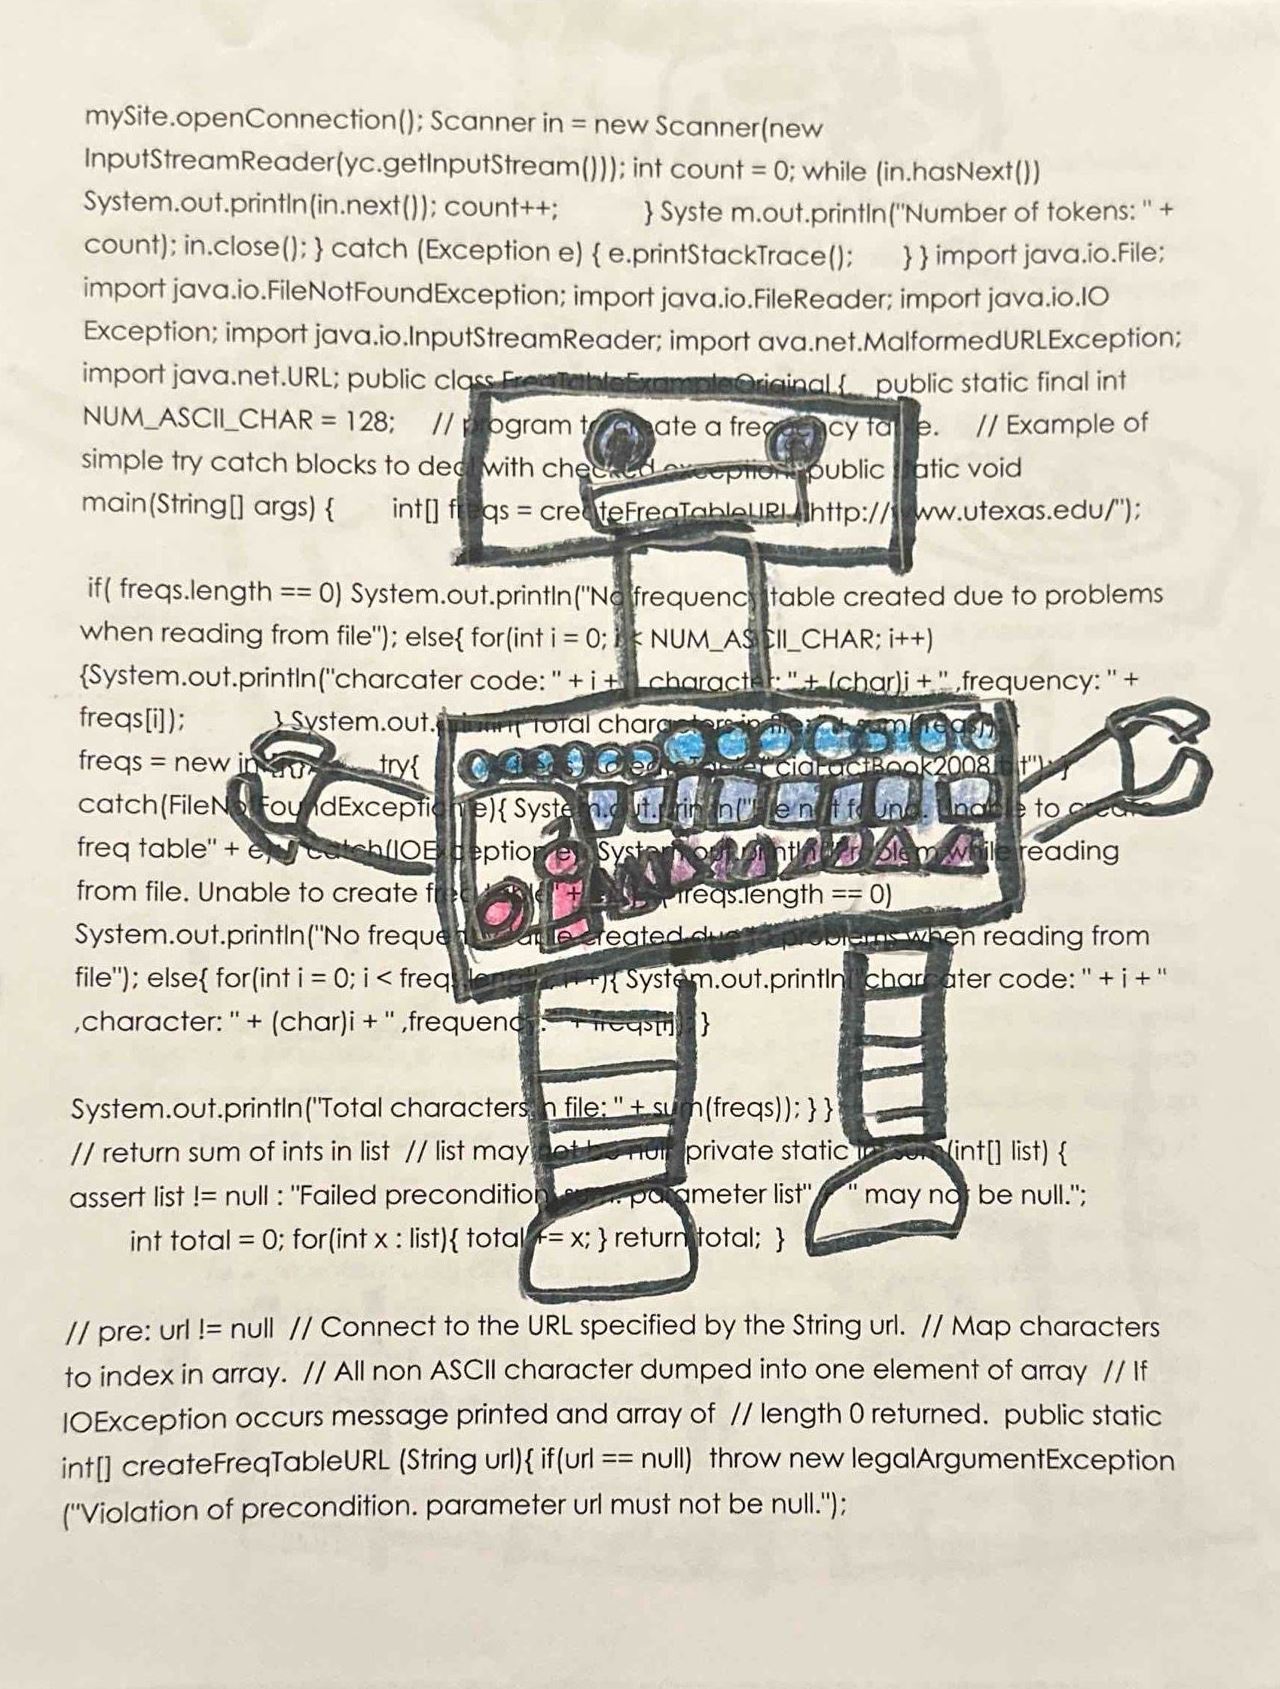 mySite.openConnection(); Scanner in = new Scanner(new
InputStreamReader(yc.getInputStream())); int count = 0; while (in.hasNext())
System.out.println(in.next()); count++; } Syste m.out.println("Number of tokens: " +
count); in.close(); } catch (Exception e) { e.printStackTrace(); } } import java.io.File;
import java.io.FileNotFoundException; import java.io.FileReader; import java.io.IO
Exception; import java.io.InputStreamReader; import ava.net.MalformedURLException;
import java.net.URL; public class FreqTableExampleOriginal { public static final int
NUM_ASCII_CHAR = 128; // program to create a frequency table. // Example of
simple try catch blocks to deal with checked exceptions public static void
main(String[] args) { int[] freqs = createFreqTableURL("http://www.utexas.edu/");
if( freqs.length == 0) System.out.println("No frequency table created due to problems
when reading from file"); else{ for(int i = 0; i < NUM_ASCII_CHAR; i++)
{System.out.println("charcater code: " + i + " character: " + (char)i + " ,frequency: " +
freqs[i]); } System.out.println("Total characters in file: " + sum(freqs));
freqs = new try{ ciaFactBook2008.txt"); }
catch(FileNotFoundException e){ System.out.println("File not found. Unable to create
freq table" + e); catch(IOException e) System.out.println("Problem while reading
from file. Unable to create freq table" + freqs.length == 0)
System.out.println("No frequency table created due to problems when reading from
file"); else{ for(int i = 0; i < freqs.length; i++){ System.out.println("charcater code: " + i + "
,character: " + (char)i + " ,frequency: " + freqs[i]); }
System.out.println("Total characters in file: " + sum(freqs)); } }
// return sum of ints in list // list may not be null private static int sum(int[] list) {
assert list != null : "Failed precondition parameter list" " may not be null.";
int total = 0; for(int x : list){ total += x; } return total; }
// pre: url != null // Connect to the URL specified by the String url. // Map characters
to index in array. // All non ASCII character dumped into one element of array // If
IOException occurs message printed and array of // length 0 returned. public static
int[] createFreqTableURL (String url){ if(url == null) throw new legalArgumentException
("Violation of precondition. parameter url must not be null.");